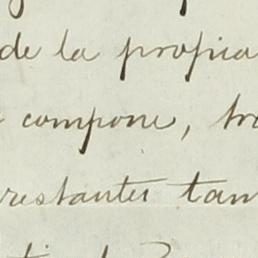 de la propia
compone, tra
restantes tam